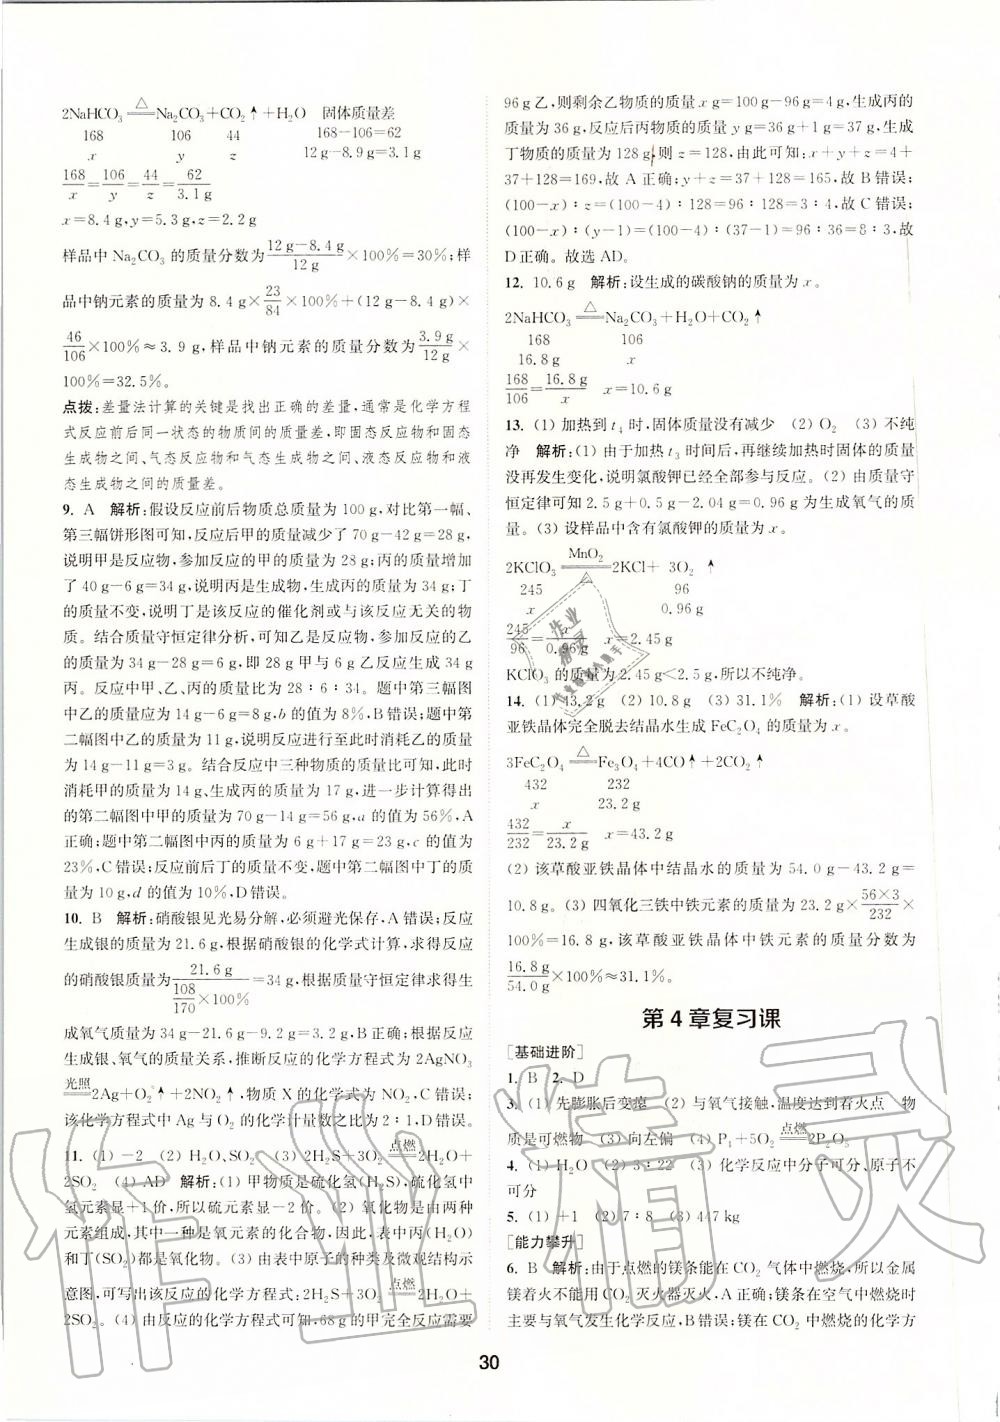 2NaHCO₃ ═△═ Na₂CO₃+CO₂↑+H₂O 固体质量差
168 106 44 168-106=62
x y z 12 g-8.9 g=3.1 g
168/x=106/y=44/z=62/3.1 g
x=8.4 g,y=5.3 g,z=2.2 g
样品中 Na₂CO₃ 的质量分数为(12 g-8.4 g)/12 g×100%=30%;样
品中钠元素的质量为 8.4 g×23/84×100%+(12 g-8.4 g)×
46/106×100%≈3.9 g,样品中钠元素的质量分数为3.9 g/12 g×
100%=32.5%。
点拨:差量法计算的关键是找出正确的差量,通常是化学方程
式反应前后同一状态的物质间的质量差,即固态反应物和固态
生成物之间、气态反应物和气态生成物之间、液态反应物和液
态生成物之间的质量差。
9. A 解析:假设反应前后物质总质量为 100 g,对比第一幅、
第三幅饼形图可知,反应后甲的质量减少了 70 g-42 g=28 g,
说明甲是反应物,参加反应的甲的质量为 28 g;丙的质量增加
了 40 g-6 g=34 g,说明丙是生成物,生成丙的质量为 34 g;丁
的质量不变,说明丁是该反应的催化剂或与该反应无关的物
质。结合质量守恒定律分析,可知乙是反应物,参加反应的乙
的质量为 34 g-28 g=6 g,即 28 g 甲与 6 g 乙反应生成 34 g
丙。反应中甲、乙、丙的质量比为 28∶6∶34。题中第三幅图
中乙的质量应为 14 g-6 g=8 g,b 的值为 8%,B 错误;题中第
二幅图中乙的质量为 11 g,说明反应进行至此时消耗乙的质量
为 14 g-11 g=3 g。结合反应中三种物质的质量比可知,此时
消耗甲的质量为 14 g、生成丙的质量为 17 g,进一步计算得出
的第二幅图中甲的质量为 70 g-14 g=56 g,a 的值为 56%,A
正确;题中第二幅图中丙的质量为 6 g+17 g=23 g,c 的值为
23%,C 错误;反应前后丁的质量不变,题中第二幅图中丁的质
量为 10 g,d 的值为 10%,D 错误。
10. B 解析:硝酸银见光易分解,必须避光保存,A 错误;反应
生成银的质量为 21.6 g,根据硝酸银的化学式计算,求得反应
的硝酸银质量为21.6 g/(108/170×100%)=34 g,根据质量守恒定律求得生
成氧气质量为 34 g-21.6 g-9.2 g=3.2 g,B 正确;根据反应
生成银、氧气的质量关系,推断反应的化学方程式为 2AgNO₃
═光照═2Ag+O₂↑+2NO₂↑,物质 X 的化学式为 NO₂,C 错误;
该化学方程式中 Ag 与 O₂ 的化学计量数之比为 2∶1,D 错误。
11. (1) -2 (2) H₂O、SO₂ (3) 2H₂S+3O₂═点燃═2H₂O+
2SO₂ (4) AD 解析:(1) 甲物质是硫化氢(H₂S),硫化氢中
氢元素显+1 价,所以硫元素显-2 价。(2) 氧化物是由两种
元素组成,其中一种是氧元素的化合物,因此,表中丙(H₂O)
和丁(SO₂)都是氧化物。(3) 由表中原子的种类及微观结构示
意图,可写出该反应的化学方程式:2H₂S+3O₂═点燃═2H₂O+
2SO₂。(4) 由反应的化学方程式可知,68 g 的甲完全反应需要
96 g 乙,则剩余乙物质的质量 x g=100 g-96 g=4 g,生成丙的
质量为 36 g,反应后丙物质的质量 y g=36 g+1 g=37 g,生成
丁物质的质量为 128 g,则 z=128,由此可知:x+y+z=4+
37+128=169,故 A 正确;y+z=37+128=165,故 B 错误;
(100-x)∶z=(100-4)∶128=96∶128=3∶4,故 C 错误;
(100-x)∶(y-1)=(100-4)∶(37-1)=96∶36=8∶3,故
D 正确。故选 AD。
12. 10.6 g 解析:设生成的碳酸钠的质量为 x。
2NaHCO₃═△═Na₂CO₃+H₂O+CO₂↑
168 106
16.8 g x
168/106=16.8 g/x x=10.6 g
13. (1) 加热到 t₄ 时,固体质量没有减少 (2) O₂ (3) 不纯
净 解析:(1) 由于加热 t₃ 时间后,再继续加热时固体的质量
没再发生变化,说明氯酸钾已经全部参与反应。(2) 由质量守
恒定律可知 2.5 g+0.5 g-2.04 g=0.96 g 为生成氧气的质
量。(3) 设样品中含有氯酸钾的质量为 x。
2KClO₃═MnO₂/△═2KCl+ 3O₂ ↑
245 96
x 0.96 g
245/96=x/0.96 g x=2.45 g
KClO₃ 的质量为 2.45 g<2.5 g,所以不纯净。
14. (1) 43.2 g (2) 10.8 g (3) 31.1% 解析:(1) 设草酸
亚铁晶体完全脱去结晶水生成 FeC₂O₄ 的质量为 x。
3FeC₂O₄═△═Fe₃O₄+4CO↑+2CO₂↑
432 232
x 23.2 g
432/232=x/23.2 g x=43.2 g
(2) 该草酸亚铁晶体中结晶水的质量为 54.0 g-43.2 g=
10.8 g。(3) 四氧化三铁中铁元素的质量为 23.2 g×(56×3)/232×
100%=16.8 g,该草酸亚铁晶体中铁元素的质量分数为
16.8 g/54.0 g×100%≈31.1%。
第 4 章复习课
[基础进阶]
1. B 2. D
3. (1) 先膨胀后变瘪 (2) 与氧气接触,温度达到着火点 物
质是可燃物 (3) 向左偏 (4) P₄+5O₂═点燃═2P₂O₅
4. (1) H₂O (2) 3∶22 (3) 化学反应中分子可分,原子不
可分
5. (1) +1 (2) 7∶8 (3) 447 kg
[能力攀升]
6. B 解析:由于点燃的镁条能在 CO₂ 气体中燃烧,所以金属
镁着火不能用 CO₂ 灭火器灭火,A 正确;镁条在空气中燃烧时
主要与氧气发生化学反应,B 错误;镁在 CO₂ 中燃烧的化学方
30
作业精灵